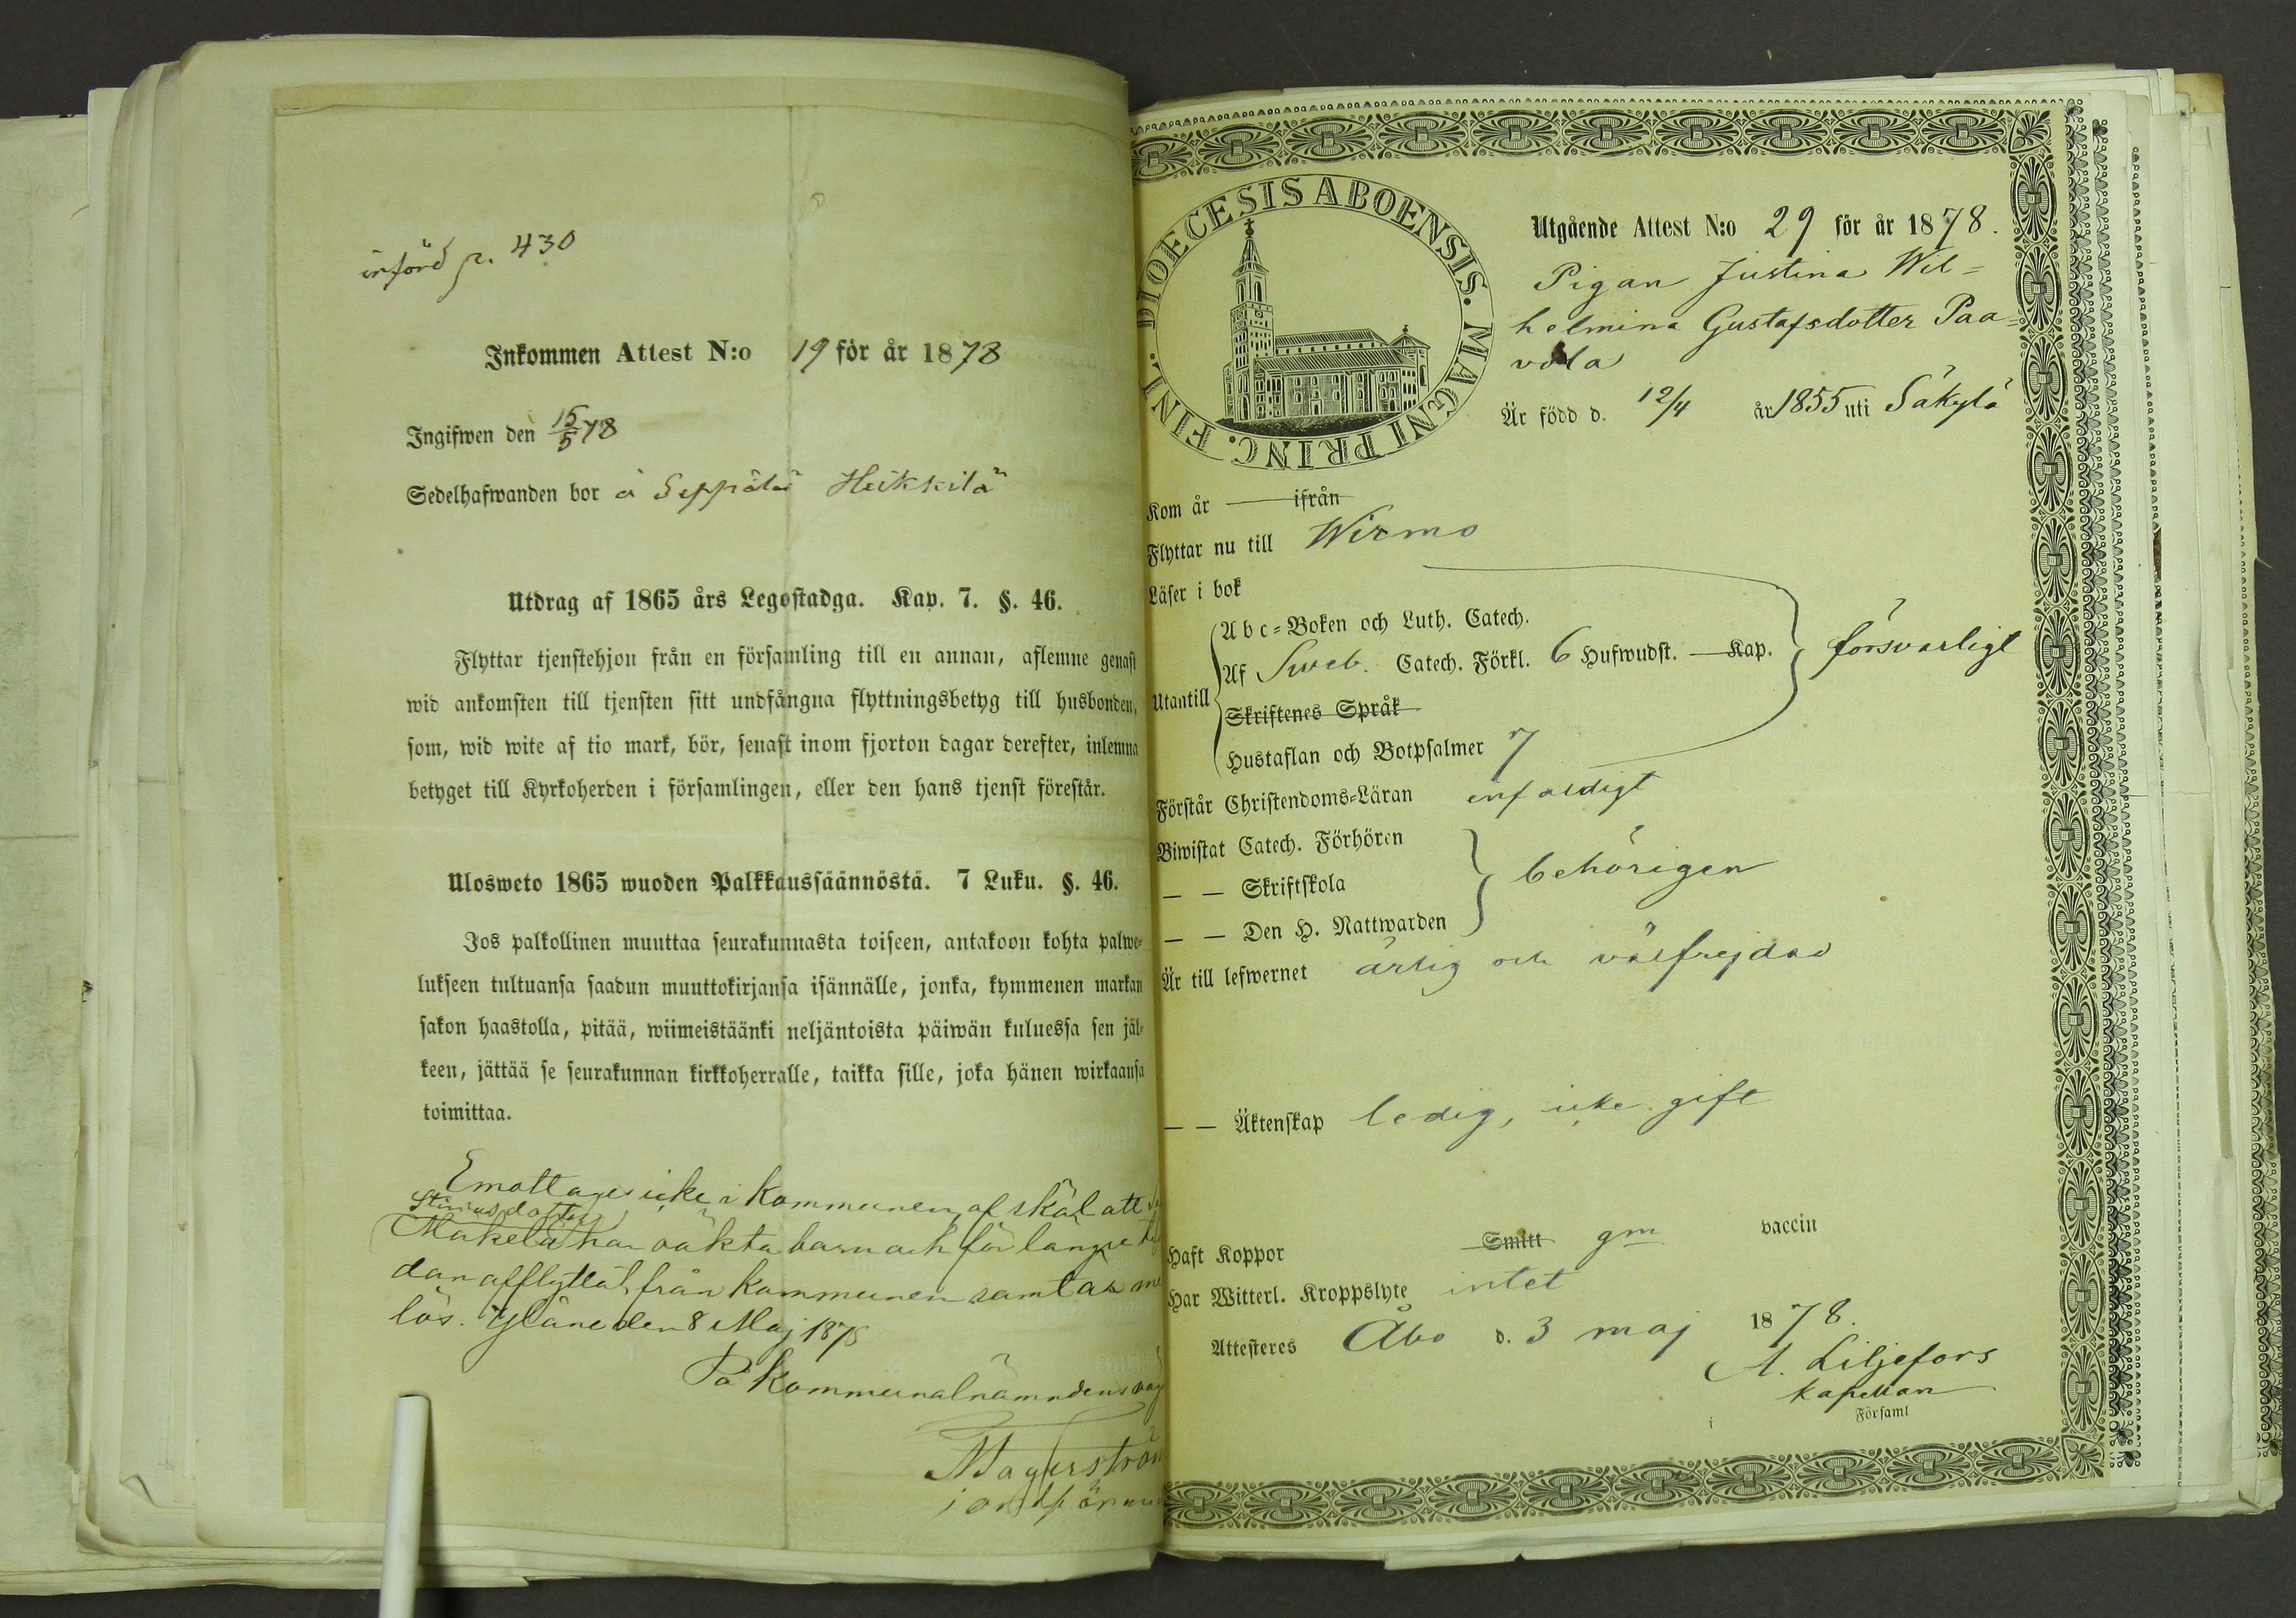 införd p. 430
Inkommen Attest N:o 19 för år 1878
Ingifwen den 15/5 78
Sedelhafwanden bor å Seppälä Heikkilä
Utdrag af 1865 års Legostadga. Kap. 7. §. 46.
Flyttar tjenstehjon från en församling till en annan, aflemne genast
wid ankomsten till tjensten sitt undfångna flyttningsbetyg till husbonden,
som, wid wite af tio mark, bör, senast inom fjorton dagar derefter, inlemna
betyget till Kyrkoherden i församlingen, eller den hans tjenst förestår.
Ulosweto 1865 wuoden Palkkaussäännöstä. 7 Luku. §. 46.
Jos palkollinen muuttaa seurakunnasta toiseen, antakoon kohta palwe-
lukseen tultuansa saadun muuttokirjansa isännälle, jonka, kymmenen markan
sakon haastolla, pitää, wiimeistäänki neljäntoista päiwän kuluessa sen jäl-
keen, jättää se seurakunnan kirkkoherralle, taikka sille, joka hänen wirkaansa
toimittaa.
Emottages icke i kommunen, af skäl att
Stinasdotter
Mäkelä har oäkta barn och för längre
dan afflyttat från kommunen samt är
lös. Yläne den 8 Maj 1878
På Kommunalnämndens
DIOECESIS ABOENSIS. MAGNI PRINC. FINL.
Utgående Attest N:o 29 för år 1878.
Pigan Justina Wil=
helmina Gustafsdotter Paa=
vola
Är född d. 12/4 år 1855 uti Säkylä
Kom år — ifrån
Flyttar nu till Wirmo
Läser i bok
Abc=Boken och Luth. Catech.
Utantill Af Sweb. Catech. Förkl. 6 Hufwudst. — Kap. försvarligt
Skriftenes Språk
Hustaflan och Botpsalmer 7
Förstår Christendoms=Läran enfaldigt
Biwistat Catech. Förhören
— — Skriftskola behörigen
— — Den H. Nattwarden
Är till lefwernet ärlig och välfrejdad
— — Äktenskap ledig, icke gift
Haft Koppor Smitt gm vaccin
Har Witterl. Kroppslyte intet
Attesteres Åbo d. 3 maj 1878.
A. Liljefors
kapellan
i Församl